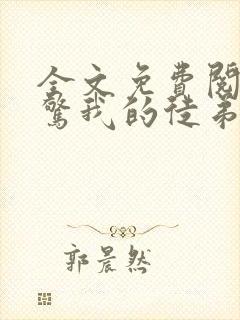 全文免费阅
惊我的徒弟
郭晨然